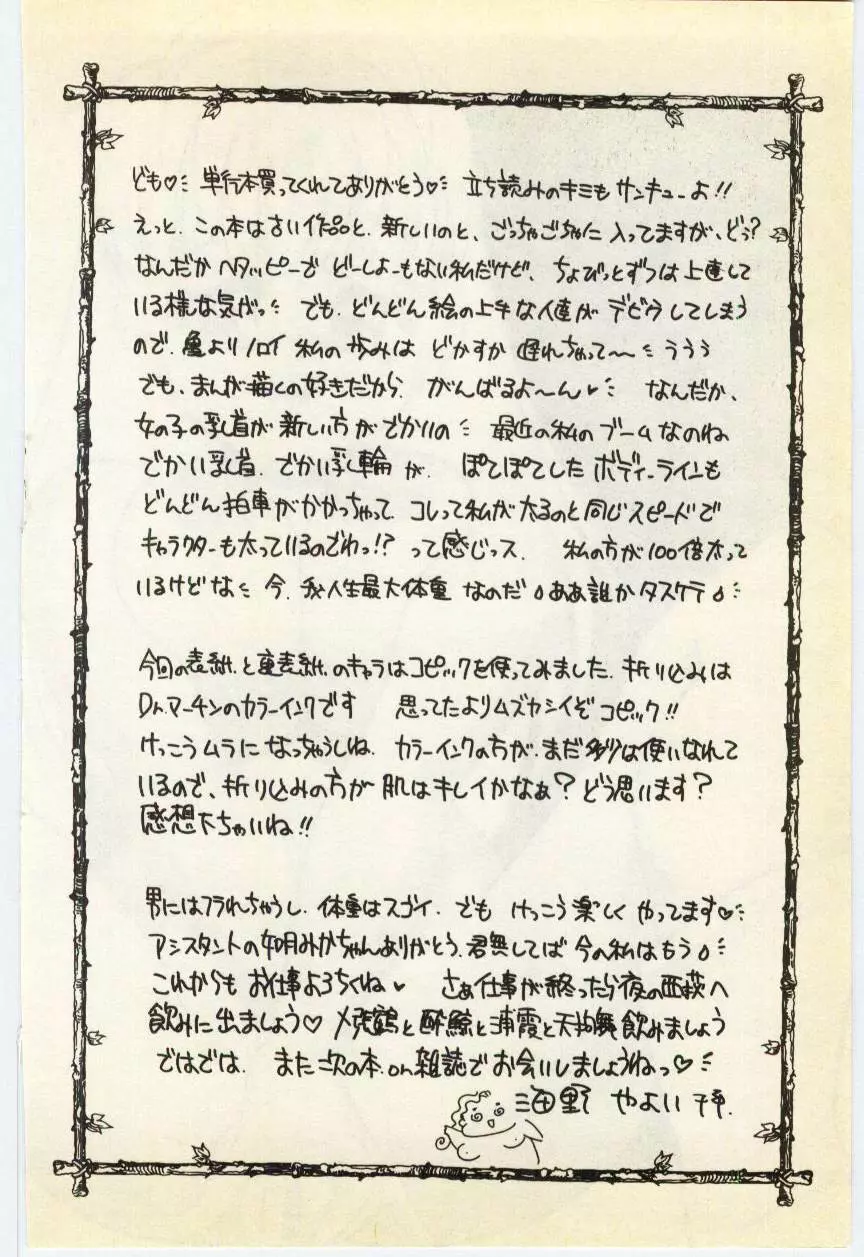 ども♡ 単行本買ってくれてありがとう♡ 立ち読みのキミもサンキューよ!!
えっと、この本は古い作品と、新しいのと、ごっちゃごちゃに入ってますが、どぅ?
なんだかヘタッピーでどーしよーもない私だけど、ちょびっとずつは上達して
いる様な気がっ でも、どんどん絵の上手な人達がデビウしてしまう
ので、亀よりノロイ私の歩みはどかすか遅れちゃって〜 ううう
でも、まんが描くの好きだから、がんばるよ〜ん♥ なんだか、
女の子の乳首が新しい方がでかいの 最近の私のブームなのね
でかい乳首、でかい乳輪が、ぽてぽてしたボディーラインも
どんどん拍車がかかっちゃって、コレって私が太るのと同じスピードで
キャラクターも太っているのでわっ!?って感じっス、私の方が100倍太って
いるけどな 今、我人生最大体重なのだ ああ誰かタスケテ
今回の表紙と裏表紙のキャラはコピックを使ってみました、折り込みは
Dr.マーチンのカラーインクです 思ってたよりムズカシイぞコピック!!
けっこうムラになっちゃうしね、カラーインクの方が、まだ多少は使いなれて
いるので、折り込みの方が肌はキレイかなぁ?どう思います?
感想下ちゃいね!!
男にはフラれちゃうし、体重はスゴイ、でもけっこう楽しくやってます♡
アシスタントの如月みかちゃんありがとう、君無しでは今の私はもう
これからもお仕事よろちくね♥ さぁ仕事が終ったら夜の西荻へ
飲みに出ましょう♡ 〆張鶴と酔鯨と浦霞と天狗舞飲みましょう
ではでは、また次の本、on雑誌でお会いしましょうねっ♡
海野 やよい 拝.